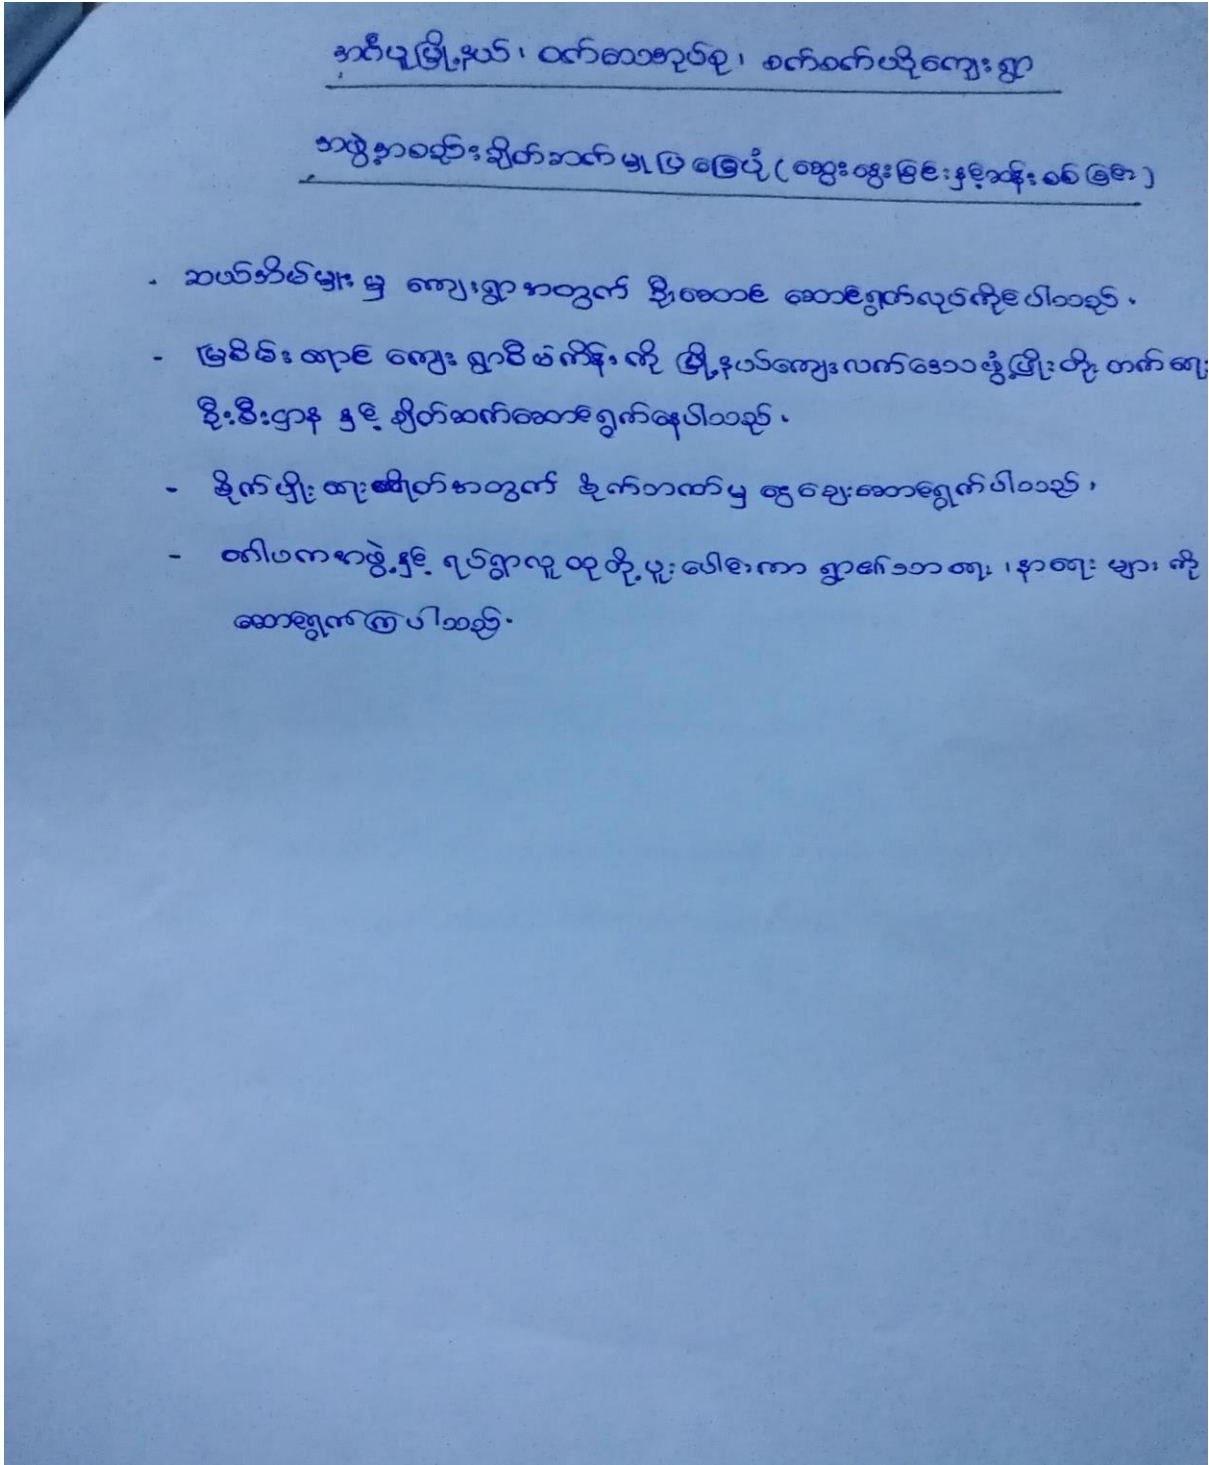 အင်္ဂပူမြို့နယ်၊ ဝက်သေအုပ်စု၊ စက်စက်ယိုကျေးရွာ
အဖွဲ့အစည်းချိတ်ဆက်မှုပြမြေပုံ (ဆွေးနွေးခြင်းနှင့်ဆန်းစစ်ခြင်း)
- ဆယ်အိမ်မှူးမှ ကျေးရွာအတွက် ဦးဆောင် ဆောင်ရွက်လုပ်ကိုင်ပါသည်။
- မြစိမ်းရောင် ကျေးရွာစီမံကိန်းကို မြို့နယ်ကျေးလက်ဒေသဖွံ့ဖြိုးတိုးတက်ရေး
ဦးစီးဌာန နှင့် ချိတ်ဆက်ဆောင်ရွက်နေပါသည်။
- စိုက်ပျိုးရေး အတွက် စိုက်ဘဏ်မှ ငွေချေးဆောင်ရွက်ပါသည်။
- ကာဖကအဖွဲ့နှင့် ရပ်ရွာလူထုတို့ပူးပေါင်းကာ ရွာ၏သာရေး၊နာရေးများကို
ဆောင်ရွက်ကြပါသည်။